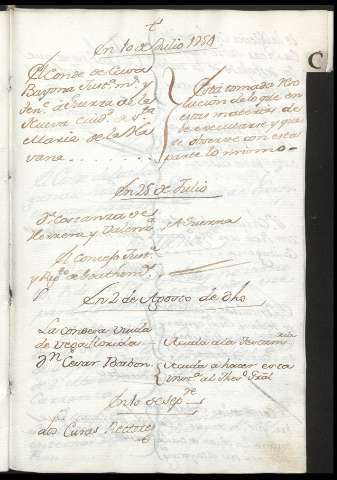 En 10 de Julio 1754
El Conde de Casa
Bayona Just.ª m.r y
Ten.te à Guerra de la
Nueva Ciud.d de S.ta
Maria de la Ha
vana
Esta tomada Reso
lucion de lo que en
estas materias de
be executarse y que
se observe con esta
parte lo mismo
En 25 de Julio
D.ª Costanza de
Herrera y
à Guerra
El Concejo Just.ª
y Reg.to de
En 2 de Agosto de dho
La Condesa Viuda
de Vega florida
Acuda a la
D.n Cesar
Acuda a hacer esta
al Thes.o Gral
En 10 de Sep.re
Los Curas Rectores
C